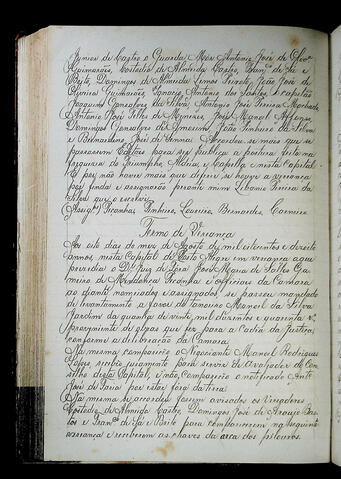 Junior de Castro o Guarda Mór Antonio José de
Guimarães, Custodio de Almeida Castro, Fran.co de Sá e
Brito, Domingos de Almeida Lemos Peixoto, João José de
Oliveira Guimarães, Ignacio Antonio dos Santos, o capitão
Joaquim Gonsalves da Silva, Antonio José Pereira Machado
Antonio José Telles de Menezes, José Manoel Affonso,
Domingos Gonsalves de Amorim, João Pinheiro da Silva
e Bernardino José de Senna. Accordou se mais que se
passassem Editaes para ser publica a postura feita na
freguesia do Triumpho, Aldeia, e Capella e nesta Capital
E por não haver mais que deferir se houve a vereança
por finda e assignarão perante mim Libanio Pereira da
Silva que o escrevi.
Assig. Peçanha, Pinheiro, Loureiro, Bernardes, Carneiro
Termo de Vereança
Aos oito dias do mez de Agosto de mil oitocentos e dezoito
annos, nesta Capital de Porto Alegre em vereança a que
presedio o Dr. Juiz de Fora José Maria de Salles Ga-
meiro de Mendonça Peçanha e officiaes da Camara
ao diante nomeados e assignados, se passou mandado
de levantamento a favor de Januario Manoel da Silva
Jardim da quantia de vinte mil duzentos e quarenta r.s
proveniente de que fez para a Cadêa da Justiça,
conforme a deliberação da Camara.
Na mesma compareceo o Negociante Manoel Rodrigues
Lopes, recebeo juramento para servir de avaliador do Con-
celho desta Capital, e não compareceo o notificado Ant.o
José de Faria por estar fora da terra.
Na mesma se accordou fossem avisados os Vereadores
Custodio de Almeida Castro, Domingos José de Araujo Bas-
tos e Fran.co de Sá e Brito para comparecerem na seguinte
vereança e receberem as chaves da arca dos pilouros.